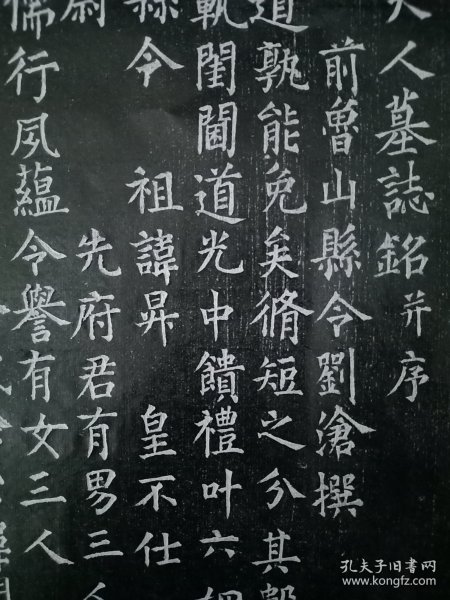 夫人墓誌銘并序
前魯山縣令劉滄撰
道孰能免矣脩短之分其
軌閨閫道光中饋禮叶六姻
縣令 祖諱昇 皇不仕
尉 先府君有男三人
儒行夙蘊令譽有女三人
孔夫子旧书网
www.kongfz.com